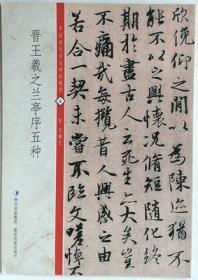 欣俛仰之間以為陳迹猶不
能不以之興懷況脩短隨化終
期於盡古人云死生亦大矣豈
不痛哉每攬昔人興感之由
若合一契未嘗不臨文嗟悼
晋王羲之兰亭序五种